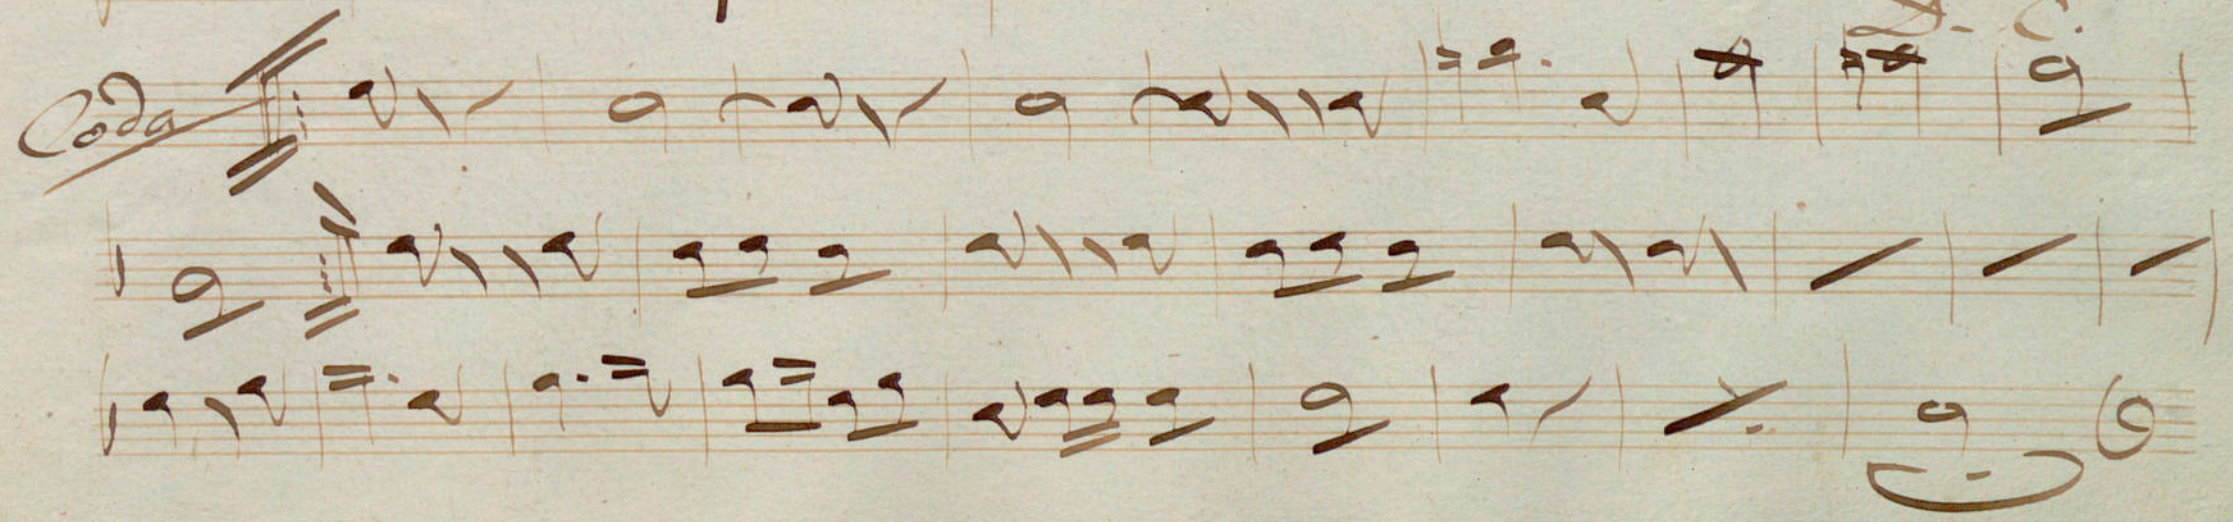 D. C.
Coda